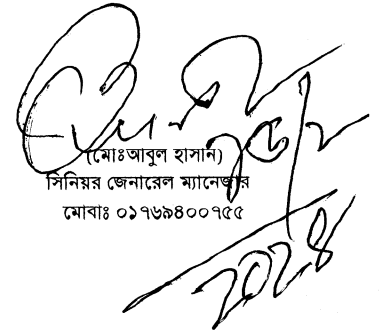 (মোঃআবুল হাসান)
সিনিয়র জেনারেল ম্যানেজার
মোবাঃ ০১৭৬৯৪০০৭৫৫
২০২৪